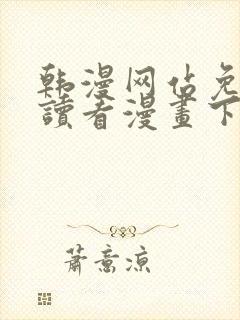 韩漫网站免
读看漫畫下
萧意凉